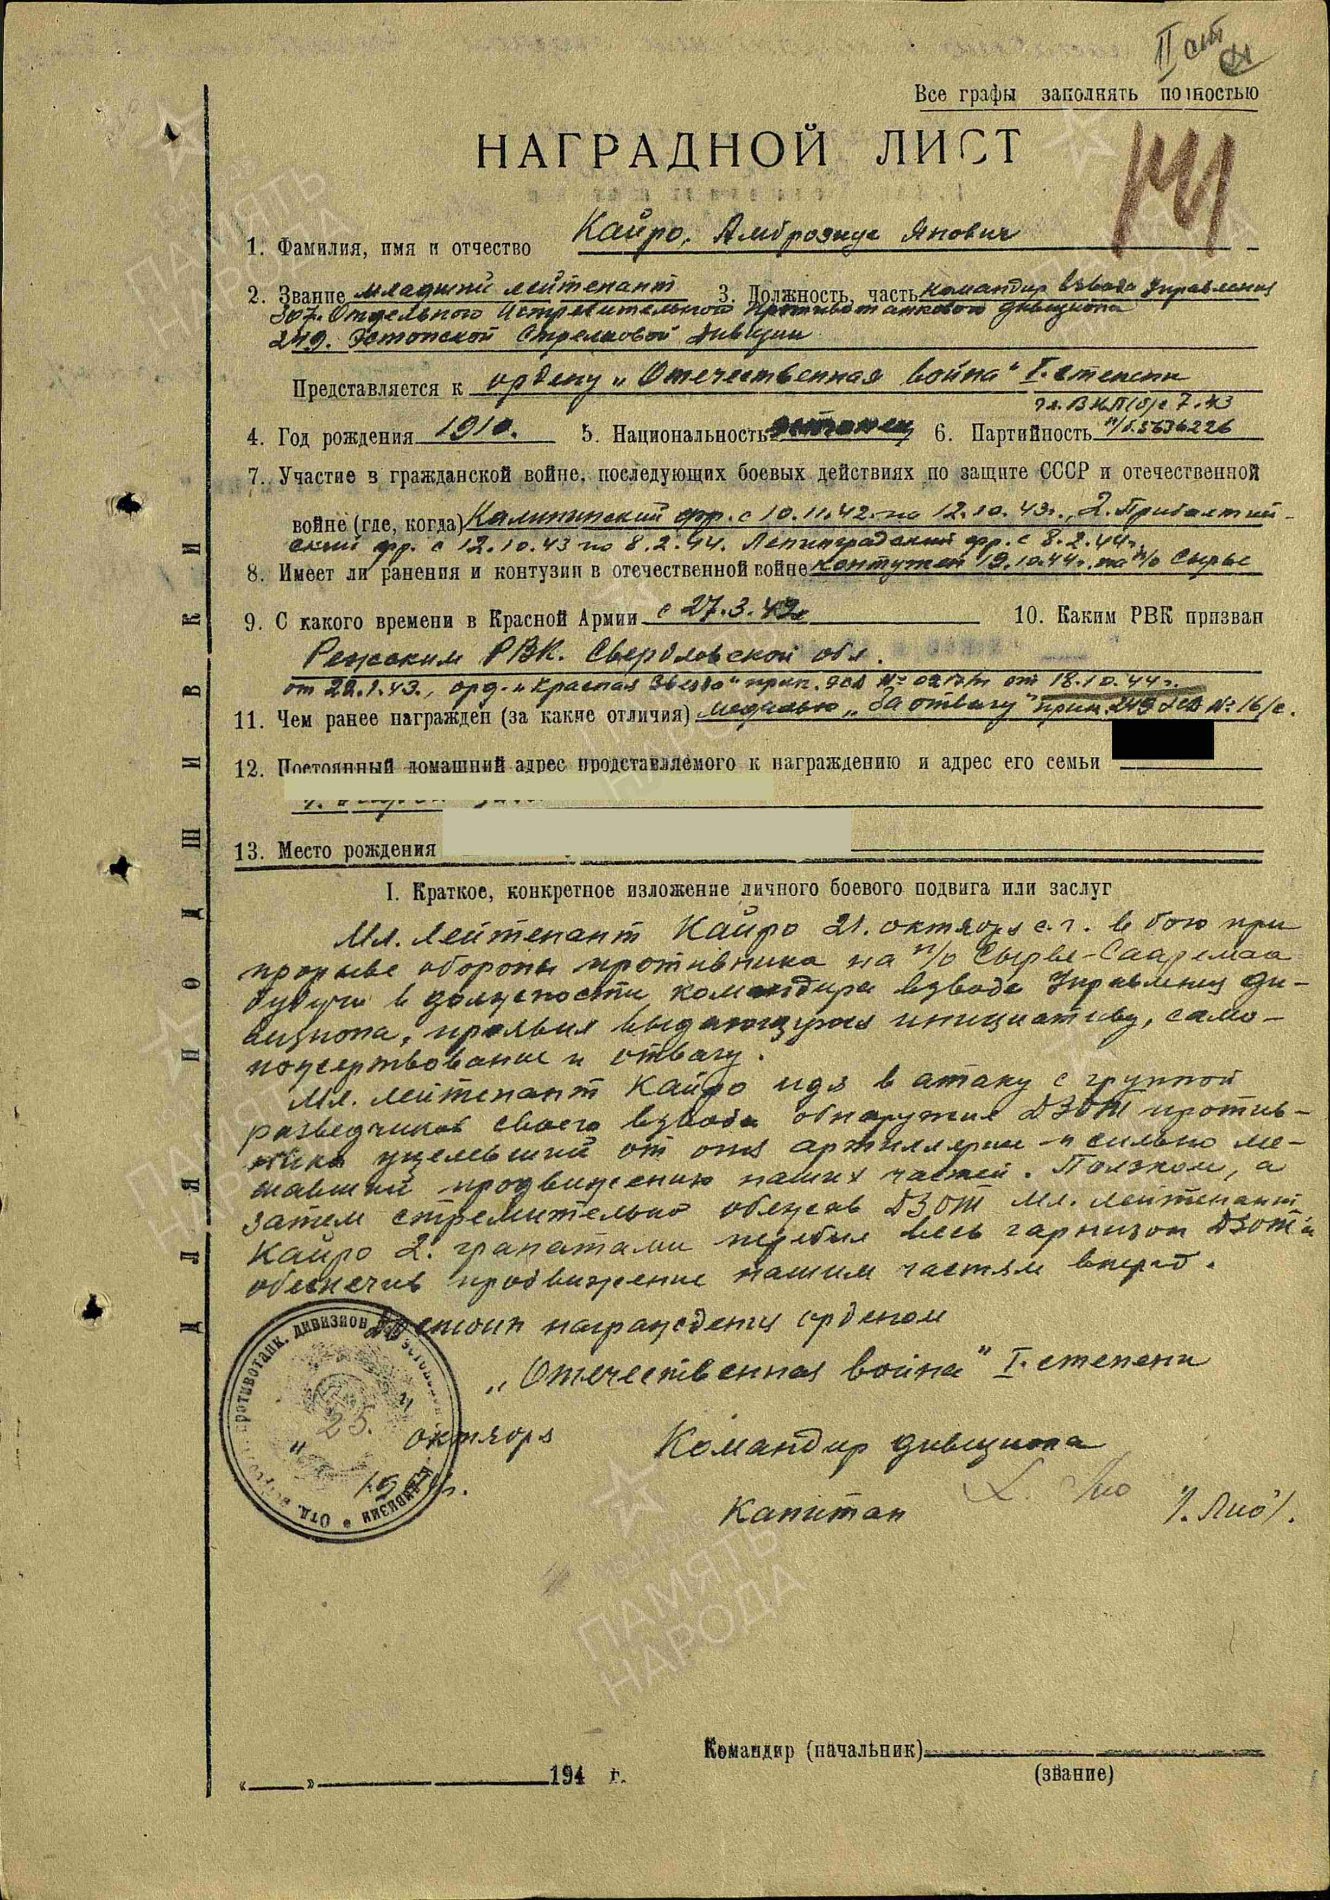 II ст
Все графы заполнять полностью
НАГРАДНОЙ ЛИСТ
141
1. Фамилия, имя и отчество Кайро, Амброзиус Янович
2. Звание младший лейтенант 3. Должность, часть командир взвода Управления
307. Отдельного Истребительного Противотанкового дивизиона
249. Эстонской Стрелковой Дивизии
Представляется к ордену „Отечественная война" I. степени
чл. ВКП(б) с 7.43
4. Год рождения 1910. 5. Национальность эстонец 6. Партийность п/б. 5636226
7. Участие в гражданской войне, последующих боевых действиях по защите СССР и отечественной
войне (где, когда) Калининский фр. с 10.11.42 по 12.10.43г., 2. Прибалтий-
ский фр. с 12.10.43 по 8.2.44. Ленинградский фр. с 8.2.44г.
8. Имеет ли ранения и контузии в отечественной войне контужен 19.10.44г. на п/о Сырве
9. С какого времени в Красной Армии с 27.3.42г 10. Каким РВК призван
Режским РВК. Свердловской обл.
от 22.1.43., орд. „Красная Звезда" прик. от 18.10.44г.
11. Чем ранее награжден (за какие отличия) медалью „За отвагу" прик. 249 эсд № 16/с.
12. Постоянный домашний адрес представляемого к награждению и адрес его семьи
13. Место рождения
I. Краткое, конкретное изложение личного боевого подвига или заслуг
Мл. лейтенант Кайро 21. октября с.г. в бою при
прорыве обороны противника на п/о Сырве-Сааремаа
будучи в должности командира взвода Управления ди-
визиона, проявил выдающуюся инициативу, само-
пожертвование и отвагу.
Мл. лейтенант Кайро идя в атаку с группой
разведчиков своего взвода обнаружил ДЗОТ против-
ника уцелевший от огня артиллерии и сильно ме-
шавший продвижению наших частей. Ползком, а
затем стремительно обежав ДЗОТ мл. лейтенант
Кайро 2. гранатами перебил весь гарнизон ДЗОТа
обеспечив продвижение нашим частям вперед.
Достоин награждения орденом
„Отечественная война" I. степени
„25." октября
Командир дивизиона
Капитан /. Лио/.
Отд. противотанк. дивизион дивизии
Командир (начальник)
(звание)
« » 194 г.
ДЛЯ ПОДШИВКИ
ПАМЯТЬ
НАРОДА